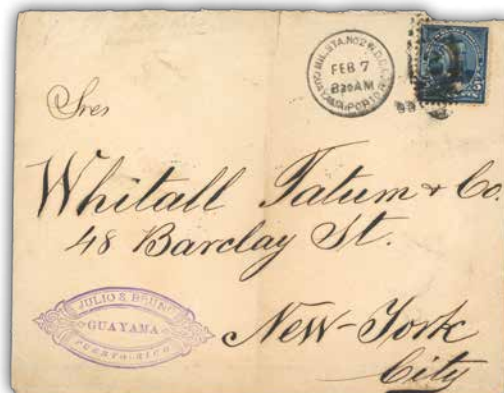 MIL. STA. No 2
FEB 7
830AM
PORTO
Sres
Whitall Tatum & Co.
48 Barclay St.
JULIO S BRUNO
GUAYAMA
PUERTO-RICO
New-York
City